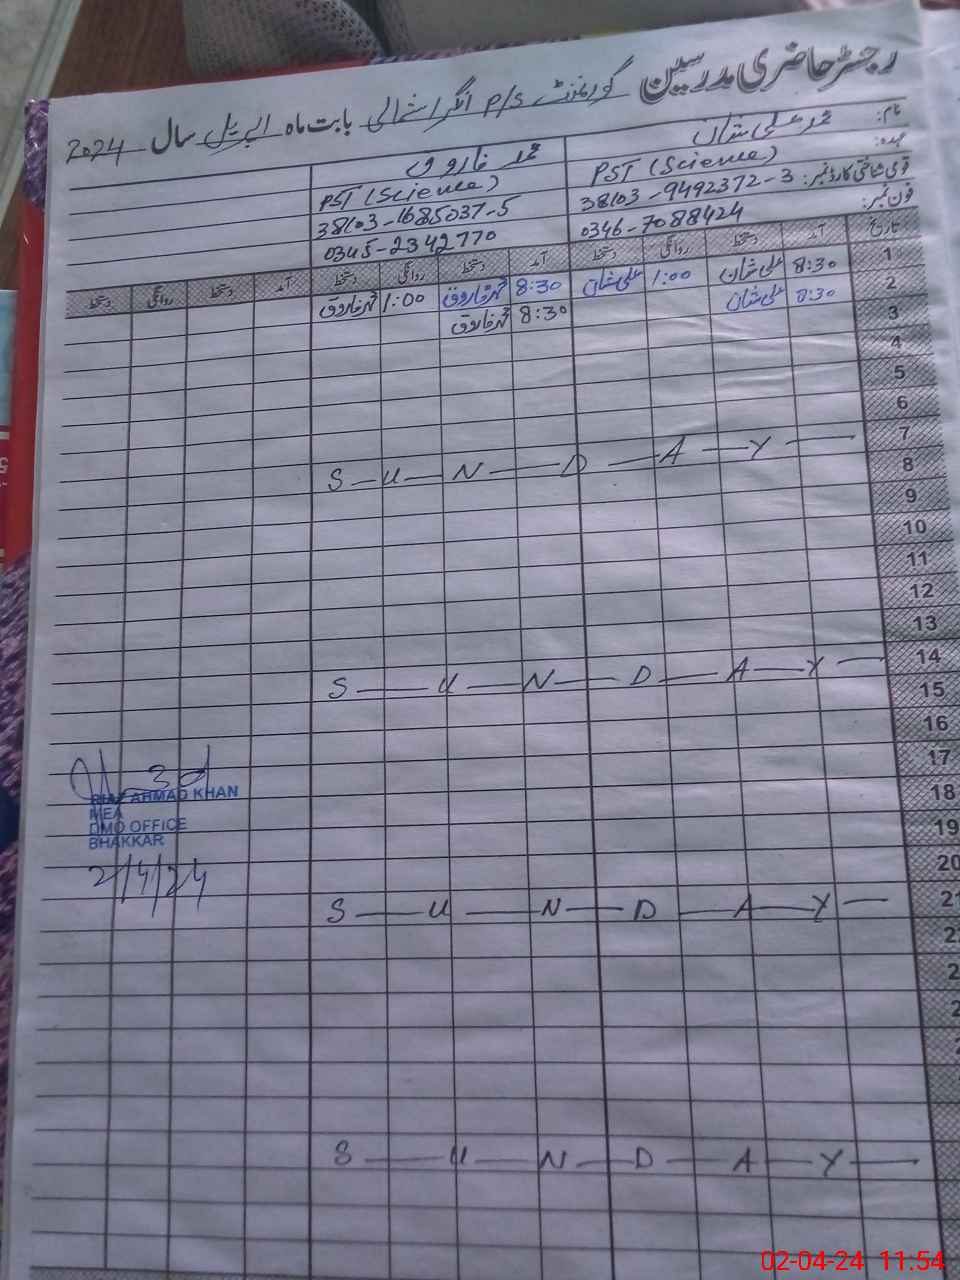 رجسٹر حاضری مدرسین گورنمنٹ P/S انگرا شمالی بابت ماہ اپریل سال 2024
نام: محمد علی شان محمد فاروق
عہدہ: PST (Science) PST (Science)
قومی شناختی کارڈ نمبر: 38103-9492372-3 38103-1685037-5
فون نمبر: 0346-7088424 0345-2342770
تاریخ آمد دستخط روانگی دستخط آمد دستخط روانگی دستخط آمد دستخط روانگی دستخط
1 8:30 علی شان 1:00 علی شان 8:30 محمد فاروق 1:00 محمد فاروق
2 8:30 علی شان 8:30 محمد فاروق
3
4
5
6
7 S-U-N-D-A-Y
8
9
10
11
12
13
14 S-U-N-D-A-Y
15
16
17
18
19
20
21 S-U-N-D-A-Y
S-U-N-D-A-Y
RIAZ AHMAD KHAN
MEA
DMO OFFICE
BHAKKAR
2/4/24
02-04-24 11:54